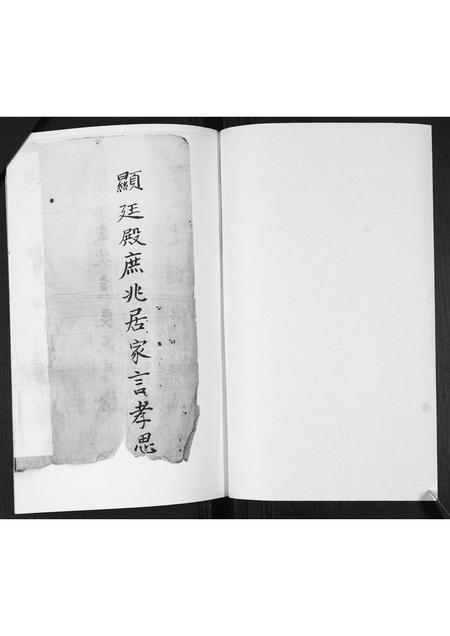 顯廷殿庶兆居家言孝思